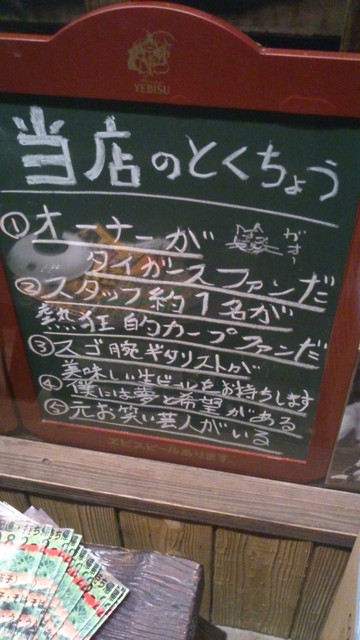 YEBISU
当店のとくちょう
①オーナーが
タイガースファンだ
がオ〜
②スタッフ約1名が
熱狂的カープファンだ
③スゴ腕ギタリストが
美味しい生ビールをお持ちします
④僕には夢と希望がある
⑤元お笑い芸人がいる
ヱビスビールあります。